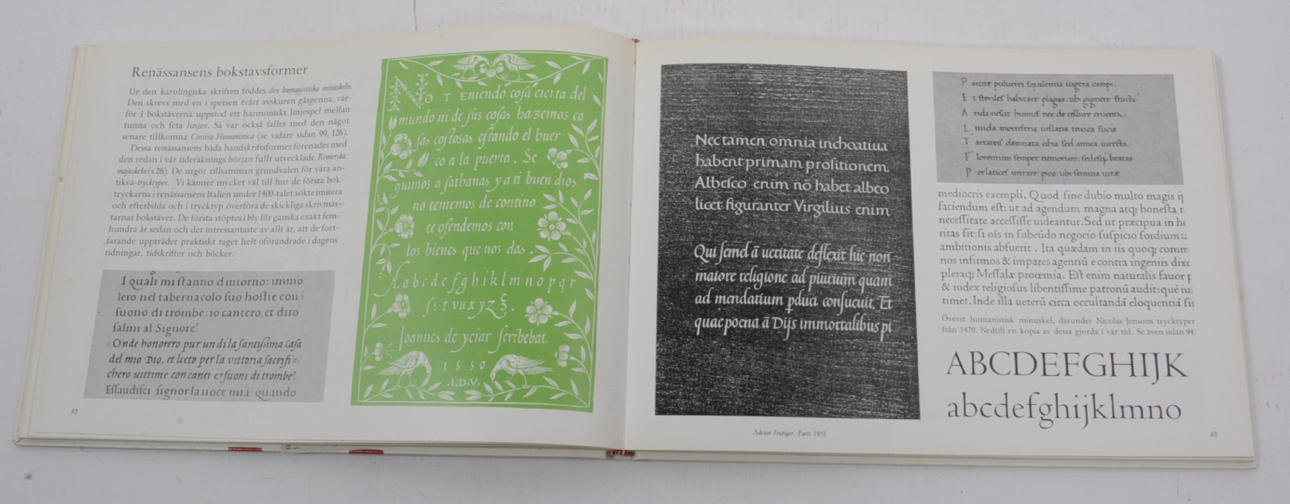 Renässansens bokstavsformer
Ur den karolingiska skriften föddes den humanistiska minuskeln.
Den skrevs med en i spetsen tvärt avskuren gåspenna, var-
för i bokstäverna uppstod ett harmoniskt linjespel mellan
tunna och feta linjer. Så var också fallet med den något
senare tillkomna Corsiva Humanistica (se vidare sidan 99, 126).
Dessa renässansens båda handskriftsformer förenades med
den redan i vår tideräknings början fullt utvecklade Romerska
majuskeln (s 26). De utgör tillsammans grundvalen för våra an-
tikva-trycktyper. Vi känner mycket väl till hur de första bok-
tryckarna i renässansens Italien under 1400-talet sökte imitera
och efterbilda och i trycktyp överföra de skickliga skrivmäs-
tarnas bokstäver. De första stöptes i bly för ganska exakt fem-
hundra år sedan och det intressantaste av allt är, att de fort-
farande uppträder praktiskt taget helt oförändrade i dagens
tidningar, tidskrifter och böcker.
I quali mi stanno d'intorno: immo
lero nel tabernacolo suo hostie con
suono di trombe: io cantero, et diro
salmi al Signore.
Onde honorero pur un di la santissima casa
del mio DIO, et lieto per la vittoria sacrifi=
chero vittime con canti et suoni di trombe.
Essaudisci signor la voce mia quando
82
NO TEniendo cosa cierta del
mundo ni de sus cosas hazemos ca
sas costosas estando el huer
co a la puerta. Se
guimos a sathanas y a ti buen dios
no tememos de contino
te ofendemos con
los bienes que nos das.
A a b c d e f g h i k l m n o p q r
s s t v u x y z
Joannes de yciar scribebat
1550
.I.D.V.
Nec tamen omnia inchoatiua
habent primam positionem.
Albesco enim nō habet albeo
licet figuranter Virgilius enim
Qui semel ā ueritate deflexit hic non
maiore religione ad piurium quam
ad mendatium pduci consueuit. Et
quae poena ā Dijs immortalibus pi
Adrian Frutiger, Paris 1951
mediocris exempli. Quod sine dubio multo magis
faciendum est: ut ad agendum magna atq; honesta
necessitate accessisse uideantur. Sed ut præcipua in
ambitionis abfuerit. Ita quædam in iis quoq;
nos infirmos & impares agentiū e contra ingeniis
pleraq; Messalæ proœmia. Est enim naturalis fauor
& iudex religiosus libentissime patronū audit: quē
timet. Inde illa ueterū circa occultandā eloquentiā
Överst humanistisk minuskel, därunder Nicolas Jensons trycktyper
från 1470. Nedtill en kopia av dessa gjorda i vår tid. Se även sidan 94.
ABCDEFGHIJK
abcdefghijklmno
83